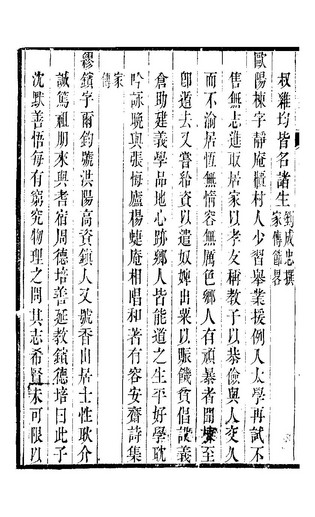 权雞均皆名諸生劉成忠撰家傳節畧
歐陽棟字靜庵櫃村人少習舉業援例入太學再試不
售無志進取居家以孝友稱教子以恭儉與人交久
而不渝居恆無惰容無厲色鄉人有頑暴者聞棟至
卽遁去又嘗希資以遣奴婢出粟以賑饑貧倡設義
倉助建義學品地心跡鄉人皆能道之生平好學耽
吟詠晚與張悔廬楊蜨庵相唱和著有容安齋詩集
家傳
繆鑌字爾鈞號洪陽高資鎮人又號香山居士性耿介
誠篤祖朋來與耆宿周德培善延教鑌德培曰此子
沈默善悟每有窮究物理之問其志希賢未可限以